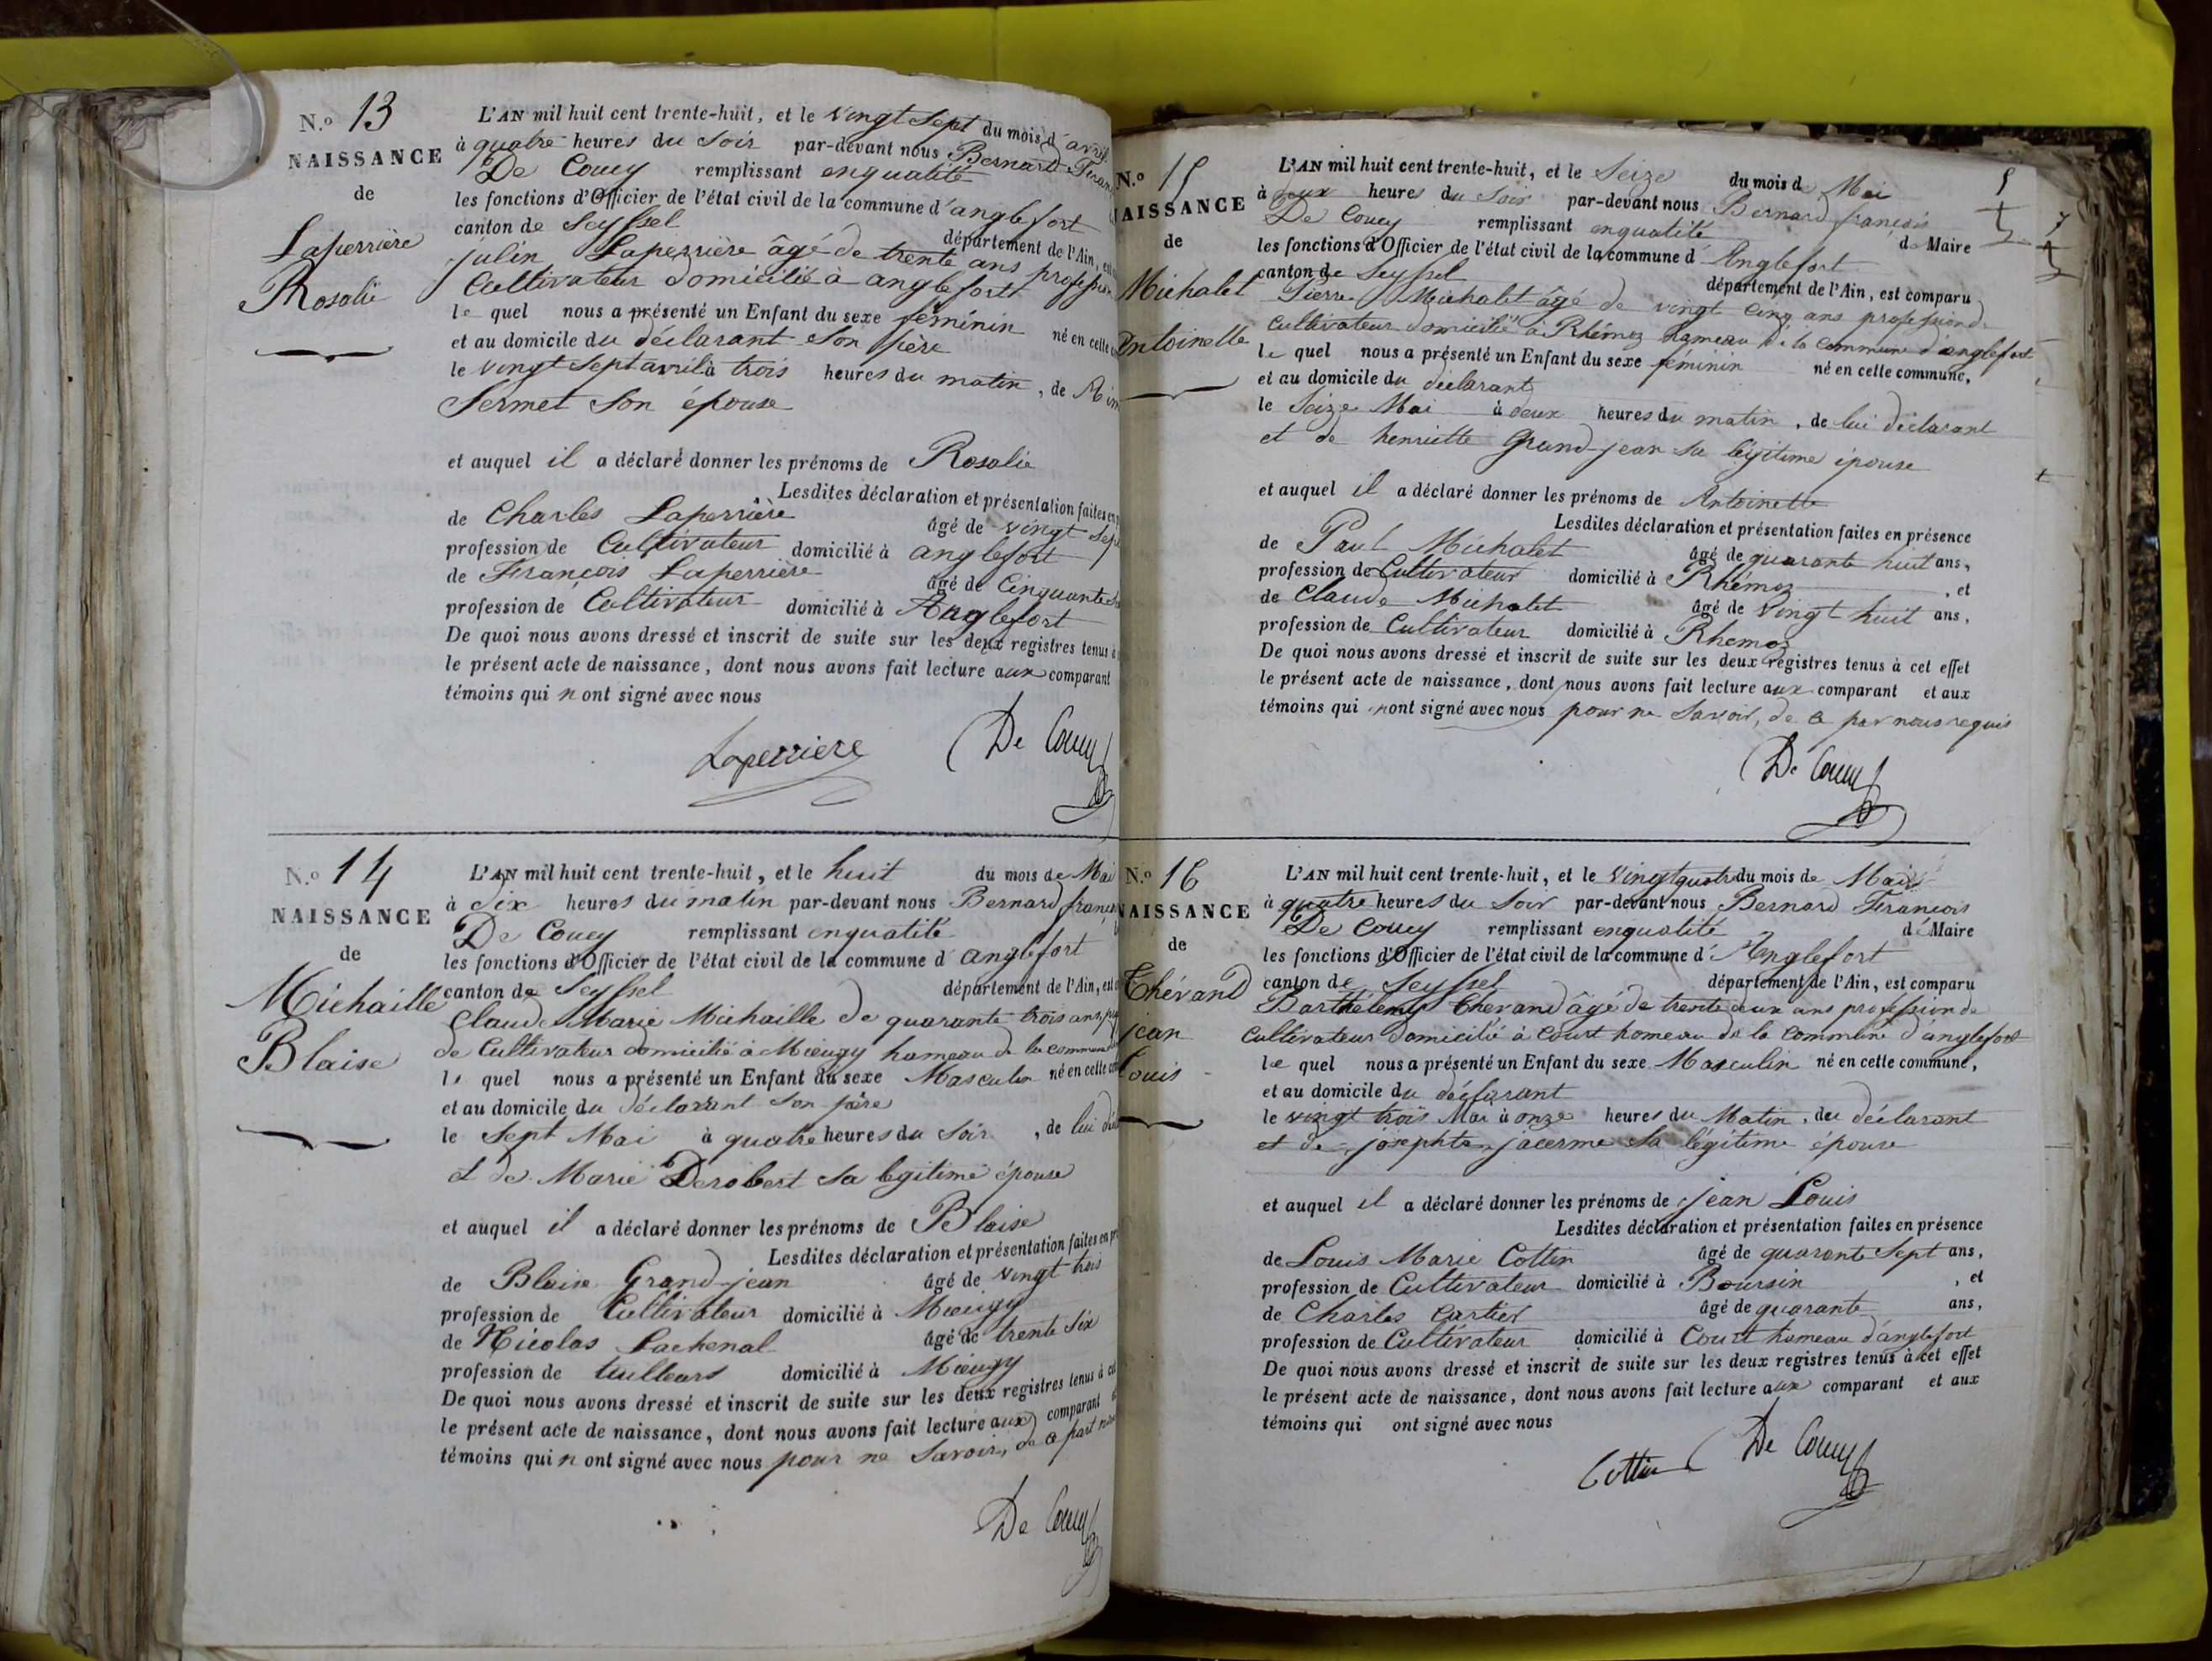 N.o 13
NAISSANCE
de
Laperrière
Rosalie
L'AN mil huit cent trente-huit, et le vingt sept du mois d'avril
à quatre heures du soir par-devant nous Bernard
De Coucy remplissant en qualité
les fonctions d'Officier de l'état civil de la commune d'anglefort
canton de Seyssel département de l'Ain,
julin Laperrière âgé de trente ans profession
Cultivateur domicilié à anglefort
le quel nous a présenté un Enfant du sexe féminin né en cette
et au domicile du déclarant son père
le vingt sept avril à trois heures du matin, de
Sermet son épouse
et auquel il a déclaré donner les prénoms de Rosalie
Lesdites déclaration et présentation faites en
de Charles Laperrière âgé de vingt sept
profession de Cultivateur domicilié à anglefort
de François Laperrière âgé de Cinquante
profession de Cultivateur domicilié à Anglefort
De quoi nous avons dressé et inscrit de suite sur les deux registres tenus à
le présent acte de naissance, dont nous avons fait lecture aux comparant
témoins qui n ont signé avec nous
Laperriere De Coucy
N.o 14
NAISSANCE
de
Michaille
Blaise
L'AN mil huit cent trente-huit, et le huit du mois de Mai
à Dix heures du matin par-devant nous Bernard françois
De Coucy remplissant en qualité
les fonctions d'Officier de l'état civil de la commune d'anglefort
canton de Seyssel département de l'Ain, est
Claude Marie Michaille de quarante trois ans,
de Cultivateur domicilié à Mieugy hameau de la commune
le quel nous a présenté un Enfant du sexe Masculin né en cette
et au domicile du déclarant son père
le Sept Mai à quatre heures du soir, de lui
et de Marie Derobert sa legitime épouse
et auquel il a déclaré donner les prénoms de Blaise
Lesdites déclaration et présentation faites en
de Blaise Grand-jean âgé de vingt trois
profession de Cultivateur domicilié à Mieugy
de Nicolas Lachenal âgé de trente six
profession de tailleurs domicilié à Mieugy
De quoi nous avons dressé et inscrit de suite sur les deux registres tenus à
le présent acte de naissance, dont nous avons fait lecture aux comparant
témoins qui n ont signé avec nous pour ne savoir, de ce
De Coucy
N.o 15
NAISSANCE
de
Michalet
Antoinette
L'AN mil huit cent trente-huit, et le Seize du mois d Mai
à deux heures du Soir par-devant nous Bernard françois
De Coucy remplissant en qualité de Maire
les fonctions d'Officier de l'état civil de la commune d'Anglefort
canton de Seyssel département de l'Ain, est comparu
Pierre Michalet âgé de vingt cinq ans profession de
cultivateur domicilié à Rhémoz hameau de la commune d'anglefort
le quel nous a présenté un Enfant du sexe féminin né en cette commune,
et au domicile du déclarant
le Seize Mai à deux heures du matin, de lui déclarant
et de henriette Grand-jean sa légitime épouse
et auquel il a déclaré donner les prénoms de Antoinette
Lesdites déclaration et présentation faites en présence
de Paul Michalet âgé de quarante huit ans,
profession de Cultivateur domicilié à Rhémoz, et
de Claude Michalet âgé de vingt huit ans,
profession de Cultivateur domicilié à Rhemoz
De quoi nous avons dressé et inscrit de suite sur les deux registres tenus à cet effet
le présent acte de naissance, dont nous avons fait lecture aux comparant et aux
témoins qui n ont signé avec nous pour ne savoir, de ce par nous requis
De Coucy
N.o 16
NAISSANCE
de
Thévand
jean
Louis
L'AN mil huit cent trente-huit, et le vingt quatre du mois de Mai
à quatre heures du Soir par-devant nous Bernard François
De Coucy remplissant en qualité de Maire
les fonctions d'Officier de l'état civil de la commune d'Anglefort
canton de Seyssel département de l'Ain, est comparu
Barthélemy Thevand âgé de trente deux ans profession de
Cultivateur domicilié à Court hameau de la commune d'anglefort
le quel nous a présenté un Enfant du sexe Masculin né en cette commune,
et au domicile du déclarant
le vingt trois Mai à onze heures du Matin, du déclarant
et de josephte jacerme sa légitime épouse
et auquel il a déclaré donner les prénoms de jean Louis
Lesdites déclaration et présentation faites en présence
de Louis Marie Cottin âgé de quarante Sept ans,
profession de Cultivateur domicilié à Boursin, et
de Charles Cartier âgé de quarante ans,
profession de Cultivateur domicilié à Court hameau d'anglefort
De quoi nous avons dressé et inscrit de suite sur les deux registres tenus à cet effet
le présent acte de naissance, dont nous avons fait lecture aux comparant et aux
témoins qui ont signé avec nous
Cottin De Coucy